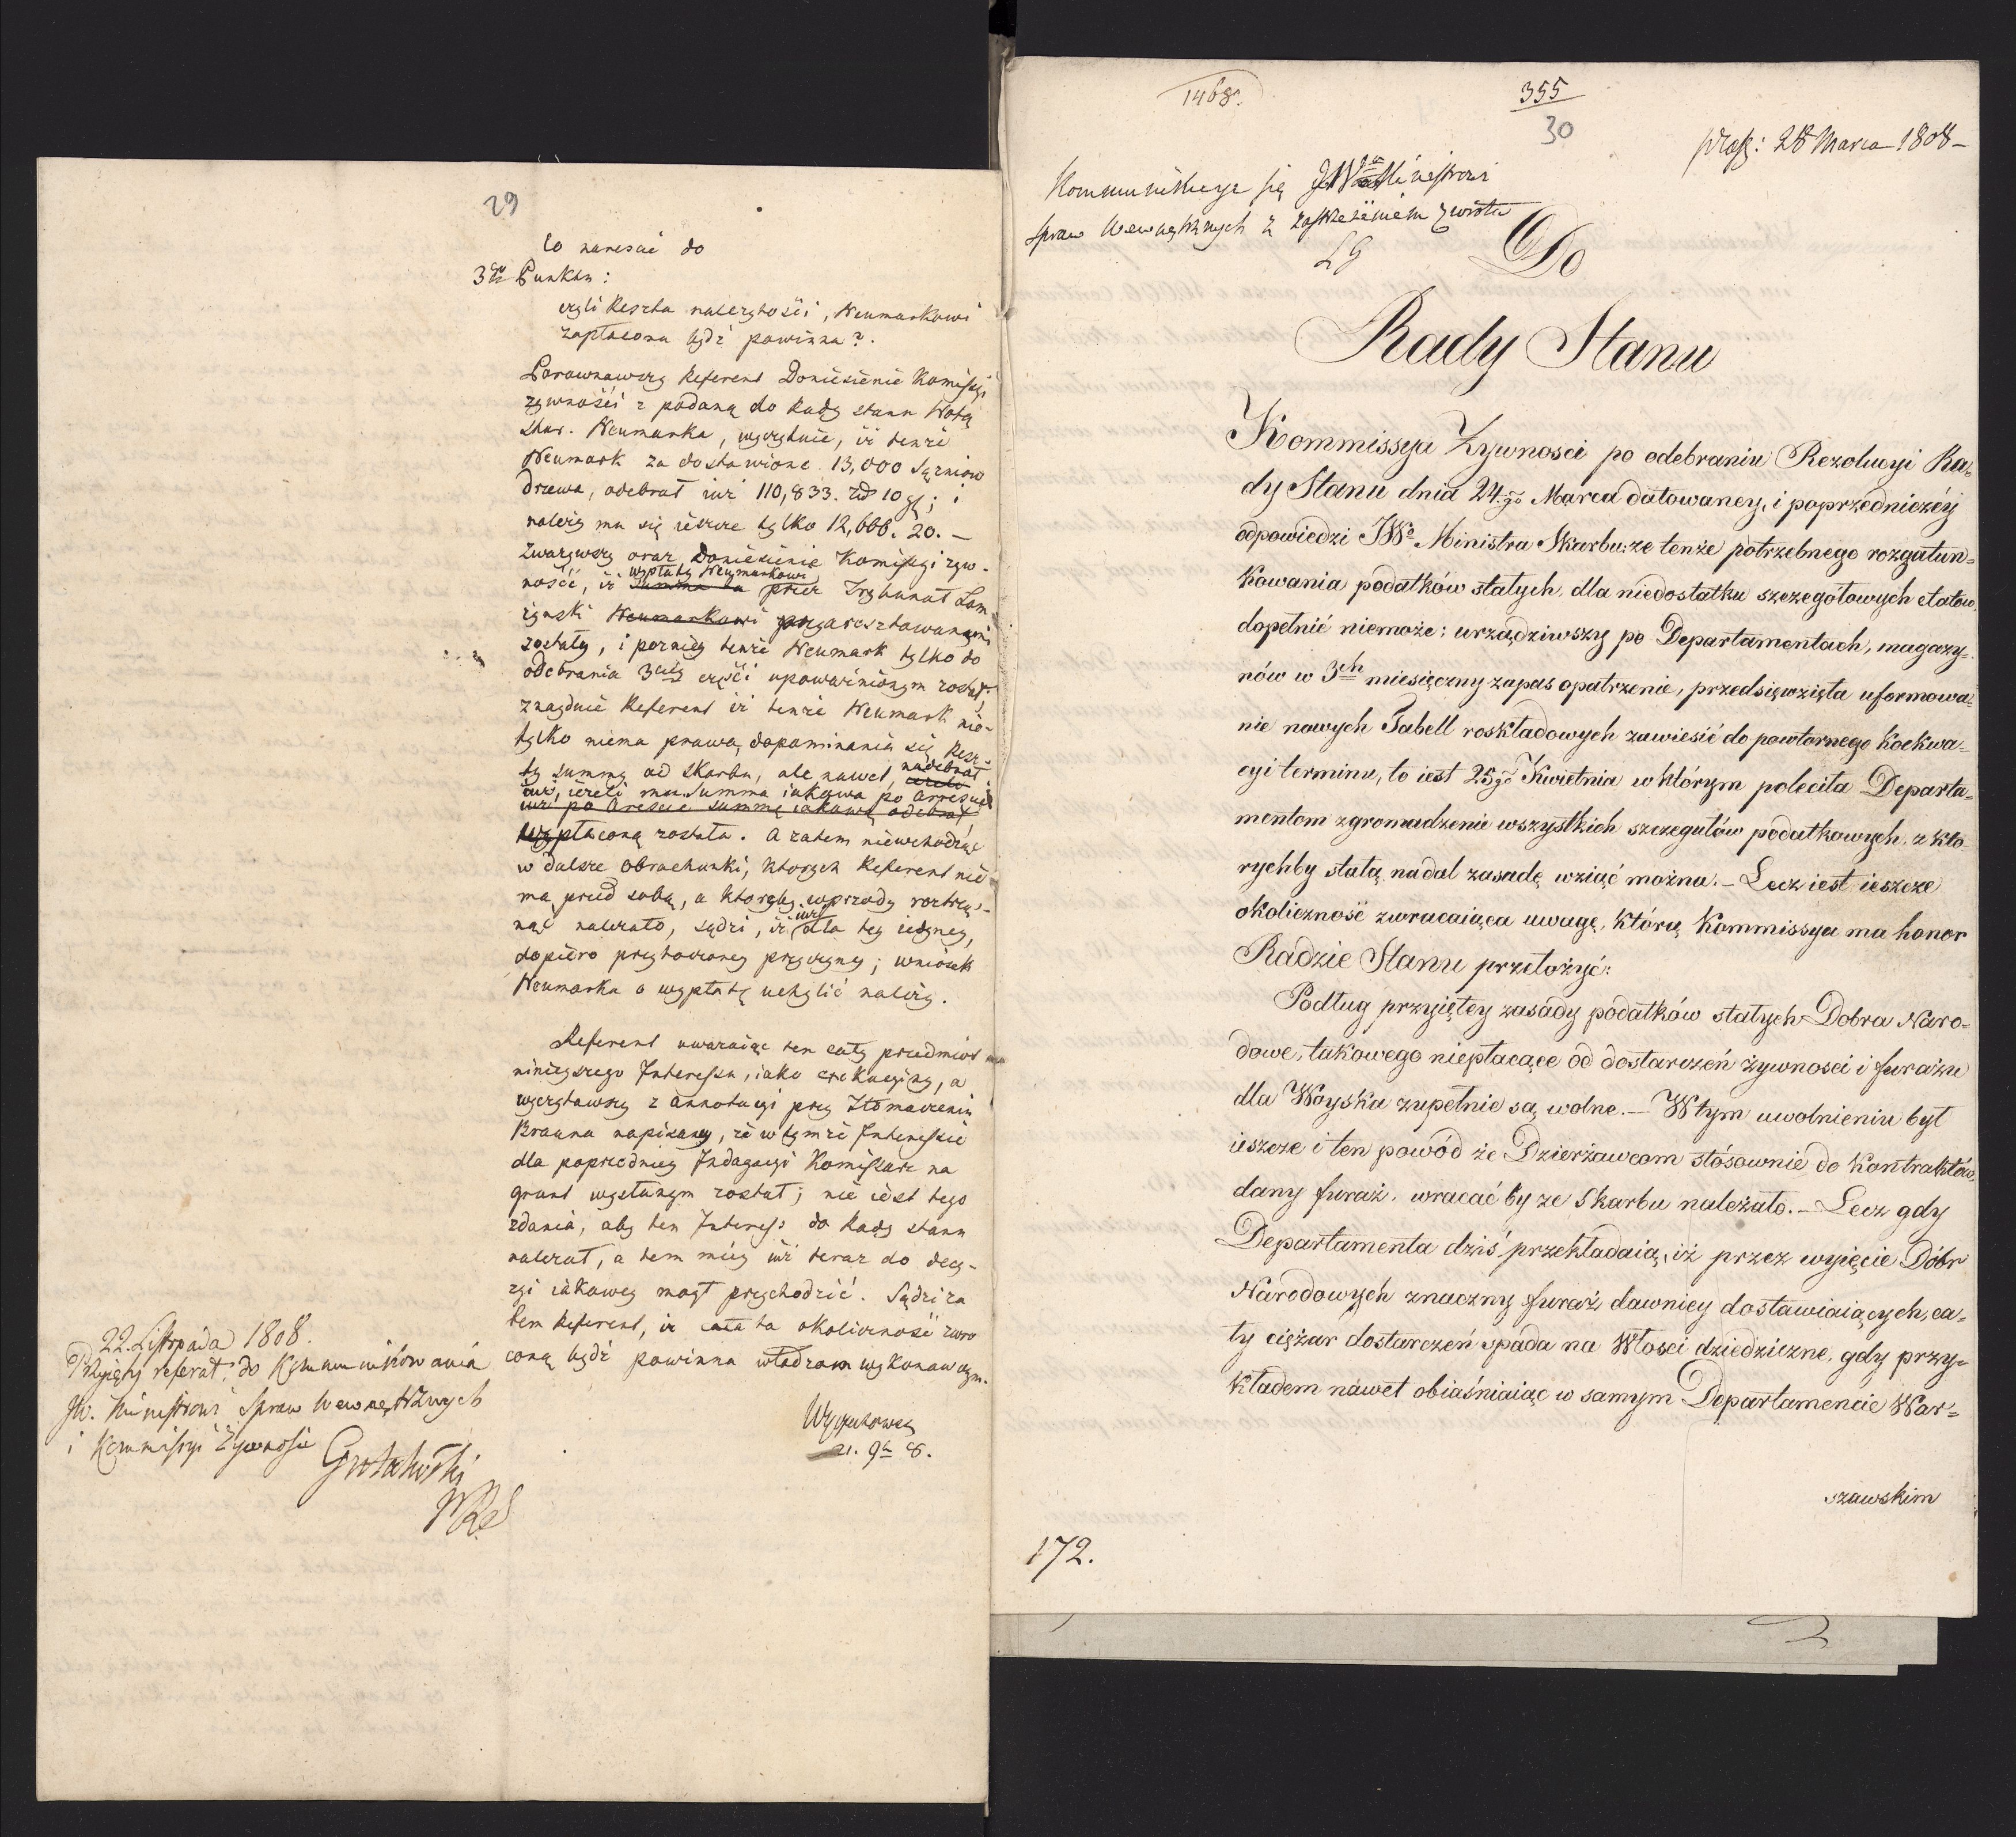 29
Co nareście do
3go Punktu:
czyli Reszta należytości, Neumarkowi
zapłacona bydź powinna?.
Porownawszy Referent Doniesienie Komissyi
zywności z podaną do Rady stanu Notą
Star. Neumarka, wyczytuie, iż tenże
Neumark za dostawione 13,000 Sążniow
Drzewa, odebrał iuż 110,833. zł 10 g; i
należy mu się ieszcze tylko 12,666. 20. —
Zważywszy oraz Doniesienie Komissyi żyw-
ności, iż wypłaty Neumarkowi przez Trybunał Łom-
żynski zaaresztowanymi
zostały, i pozniey tenże Neumark tylko do
odebrania 3ciey części upoważnionym został;
znayduie Referent iż tenże Neumark nie-
tylko niema prawa, dopominania się Resz-
ty summy od skarbu, ale nawet, nadebrał
iuż, ieżeli mu Summa iakowa po Arreszcie
iuż po Areszcie summę iakową odebrał
wypłaconą została. A zatem niewchodząc
w dalsze obrachunki, ktorych Referent nie
ma przed sobą, a ktoreby wprzody roztrzą-
nąć należało, sądzi, iż iuż dla tey iedyney,
dopiero przytoczoney przyczyny; wniosek
Neumarka o wypłatę uchylić należy.
Referent uważaiąc ten cały przedmiot
ninieyszego Interessu, iako exekucyiny, a
wyczytawszy z annotacyi przy Tłomaczeniu
Brauna napisaney, że w tymże Interessie
dla poprzedniey Indagacyi Komissarz na
grunt wysłanym został; nie iest tego
zdania, aby ten Interess do Rady stanu
należał, a tem mniey iuż teraz do decy-
zyi iakowey mógł przychodzić. Sądzi za
tem Referent, iż cała ta okoliczność zwro
coną bydź powinna władzom wykonawczym.
Wyczechowski
21. 9br 8.
22. Listopada 1808.
Przyięty referat, do Kommunikowania
JW. Ministrowi Spraw Wewnętrznych
i Kommissyi Żywności
Grabowski
1468.
355
30
præs: 28 Marca 1808 –
Kommunikuye się JW Ministrowi
Spraw Wewnętrznych z zastrzeżeniem zwrotu
LG
Do
Rady Stanu
Kommissya Żywnosci po odebraniu Rezolucyi Ra-
dy Stanu dnia 24go Marca datowaney, i poprzedniczéy
odpowiedzi JWo Ministra Skarbu: że tenże potrzebnego rozgatun-
kowania podatków stałych, dla niedostatku szczegółowych etatow,
dopełnić niemoże; urządziwszy po Departamentach, magazy-
nów w 3ch miesięczny zapas opatrzenie, przedsięwzięta uformowa-
nie nowych Tabell roskładowych zawiesić do powtornego Koekwa-
cyi terminu, to iest 25go Kwietnia w którym poleciła Departa-
mentom zgromadzenie wszystkich szczegułów podatkowych, z któ
rychby stałą nadal zasadę wziąć można. – Lecz iest ieszcze
okoliczność zwracaiąca uwagę, którą Kommissya ma honor
Radzie Stanu przełożyć:
Podług przyiętey zasady podatków stałych Dobra Naro-
dowe, takowego niepłacące od dostarczeń żywnosci i furażu
dla Woyska zupełnie są wolne. – W tym uwolnieniu był
ieszcze i ten powód że Dzierżawcom stósownie do Kontraktów,
dany furaż, wracać by ze Skarbu należało. – Lecz gdy
Departamenta dziś przekładaią, iż przez wyięcie Dóbr
Narodowych znaczny furaż dawniey dostawiaiących, ca-
ły ciężar dostarczeń spada na Włosci dziedziczne, gdy przy-
kładem nawet obiaśniaiąc w samym Departamencie War-
szawskim
172.